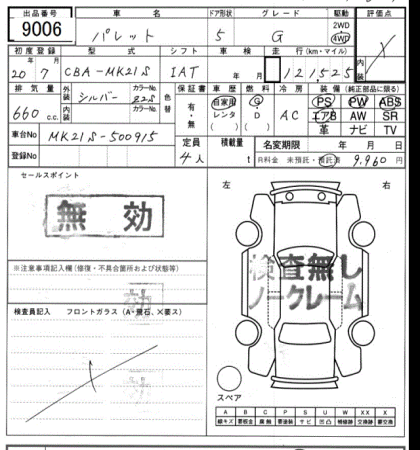 出品番号 車名 ドア形状 グレード 駆動 評価点
9006 パレット 5 G 2WD 4WD X
初度登録 型式 シフト 車検 走行(km・マイル) 内装
20年 7月 CBA-MK21S IAT 年 月 121,525
排気量 外装 カラーNo. 色替 保証書 車歴 燃料 冷房 装備(純正部品に限る)
660 c.c. 内装 シルバー カラーNo. Z2S 有・無 自家用 レンタ G D AC PS PW ABS
エアB AW SR
革 ナビ TV
車台No MK21S-500915 定員 積載量 名変期限 年 月 日
登録No 4人 t R料金 未預託・預託済 9,960円
セールスポイント 左 右
無効
検査無し
ノークレーム
※注意事項記入欄(修復・不具合箇所および状態等)
効
検査員記入 フロントガラス(A・飛石、X要ス)
スペア
A B C P S U W X XX
線キズ 要板金 腐蝕 要塗装 サビ 凹凸 補修跡 交換跡 要交換